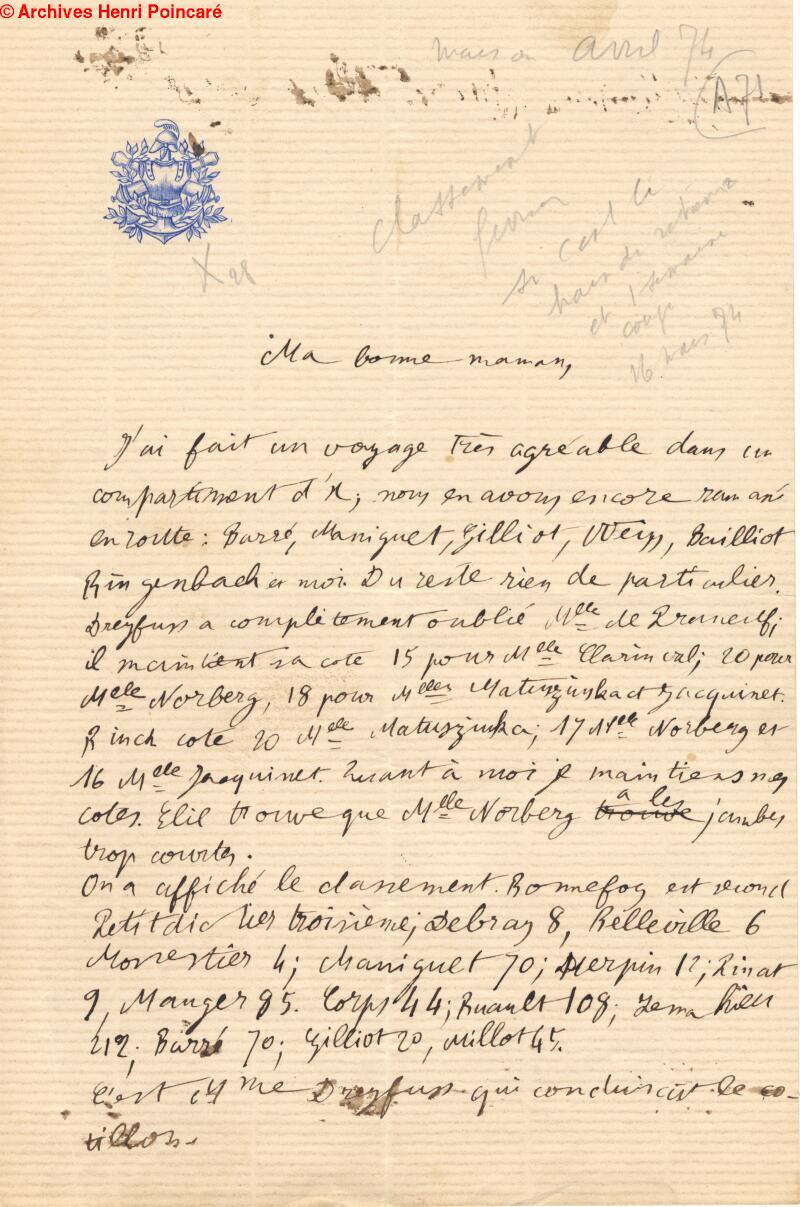 © Archives Henri Poincaré
mars ou avril 74
A71
Classement
février
si c'est le
et 1 semaine
coup
16 mars 74
X 28
Ma bonne maman,
J'ai fait un voyage très agréable dans un
compartiment d'X; nous en avons encore ramassé
en route : Barré, Maniguet, Gilliot, Weiss, Bailliot
Ringenbach et moi. Du reste rien de particulier.
Dreyfuss a complètement oublié Mlle de
il maintient sa cote 15 pour Mlle Clarinval; 20 pour
Melle Norberg, 18 pour Melles Matuszinska et Jacquinet.
Rinck cote 20 Melle Matuszinska; 17 Melle Norberg et
16 Melle Jacquinet. Quant à moi je maintiens mes
cotes. Elie trouve que Melle Norberg trouve a les jambes
trop courtes.
On a affiché le classement. Bonnefoy est second
Petitdidier troisième; Debray 8, Belleville 6
Monestier 4; Maniguet 70; Herpin 12; Pinat
9, Mauger 85. Corps 44; Ruault 108;
212; Barré 70; Gilliot 20, Millot 45.
C'est Mme Dreyfuss qui conduisait le co-
tillon.